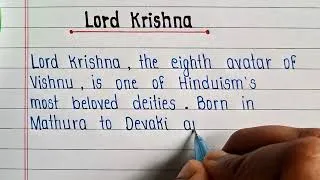 Lord Krishna
Lord Krishna, the eighth avatar of
Vishnu, is one of Hinduism's
most beloved deities. Born in
Mathura to Devaki